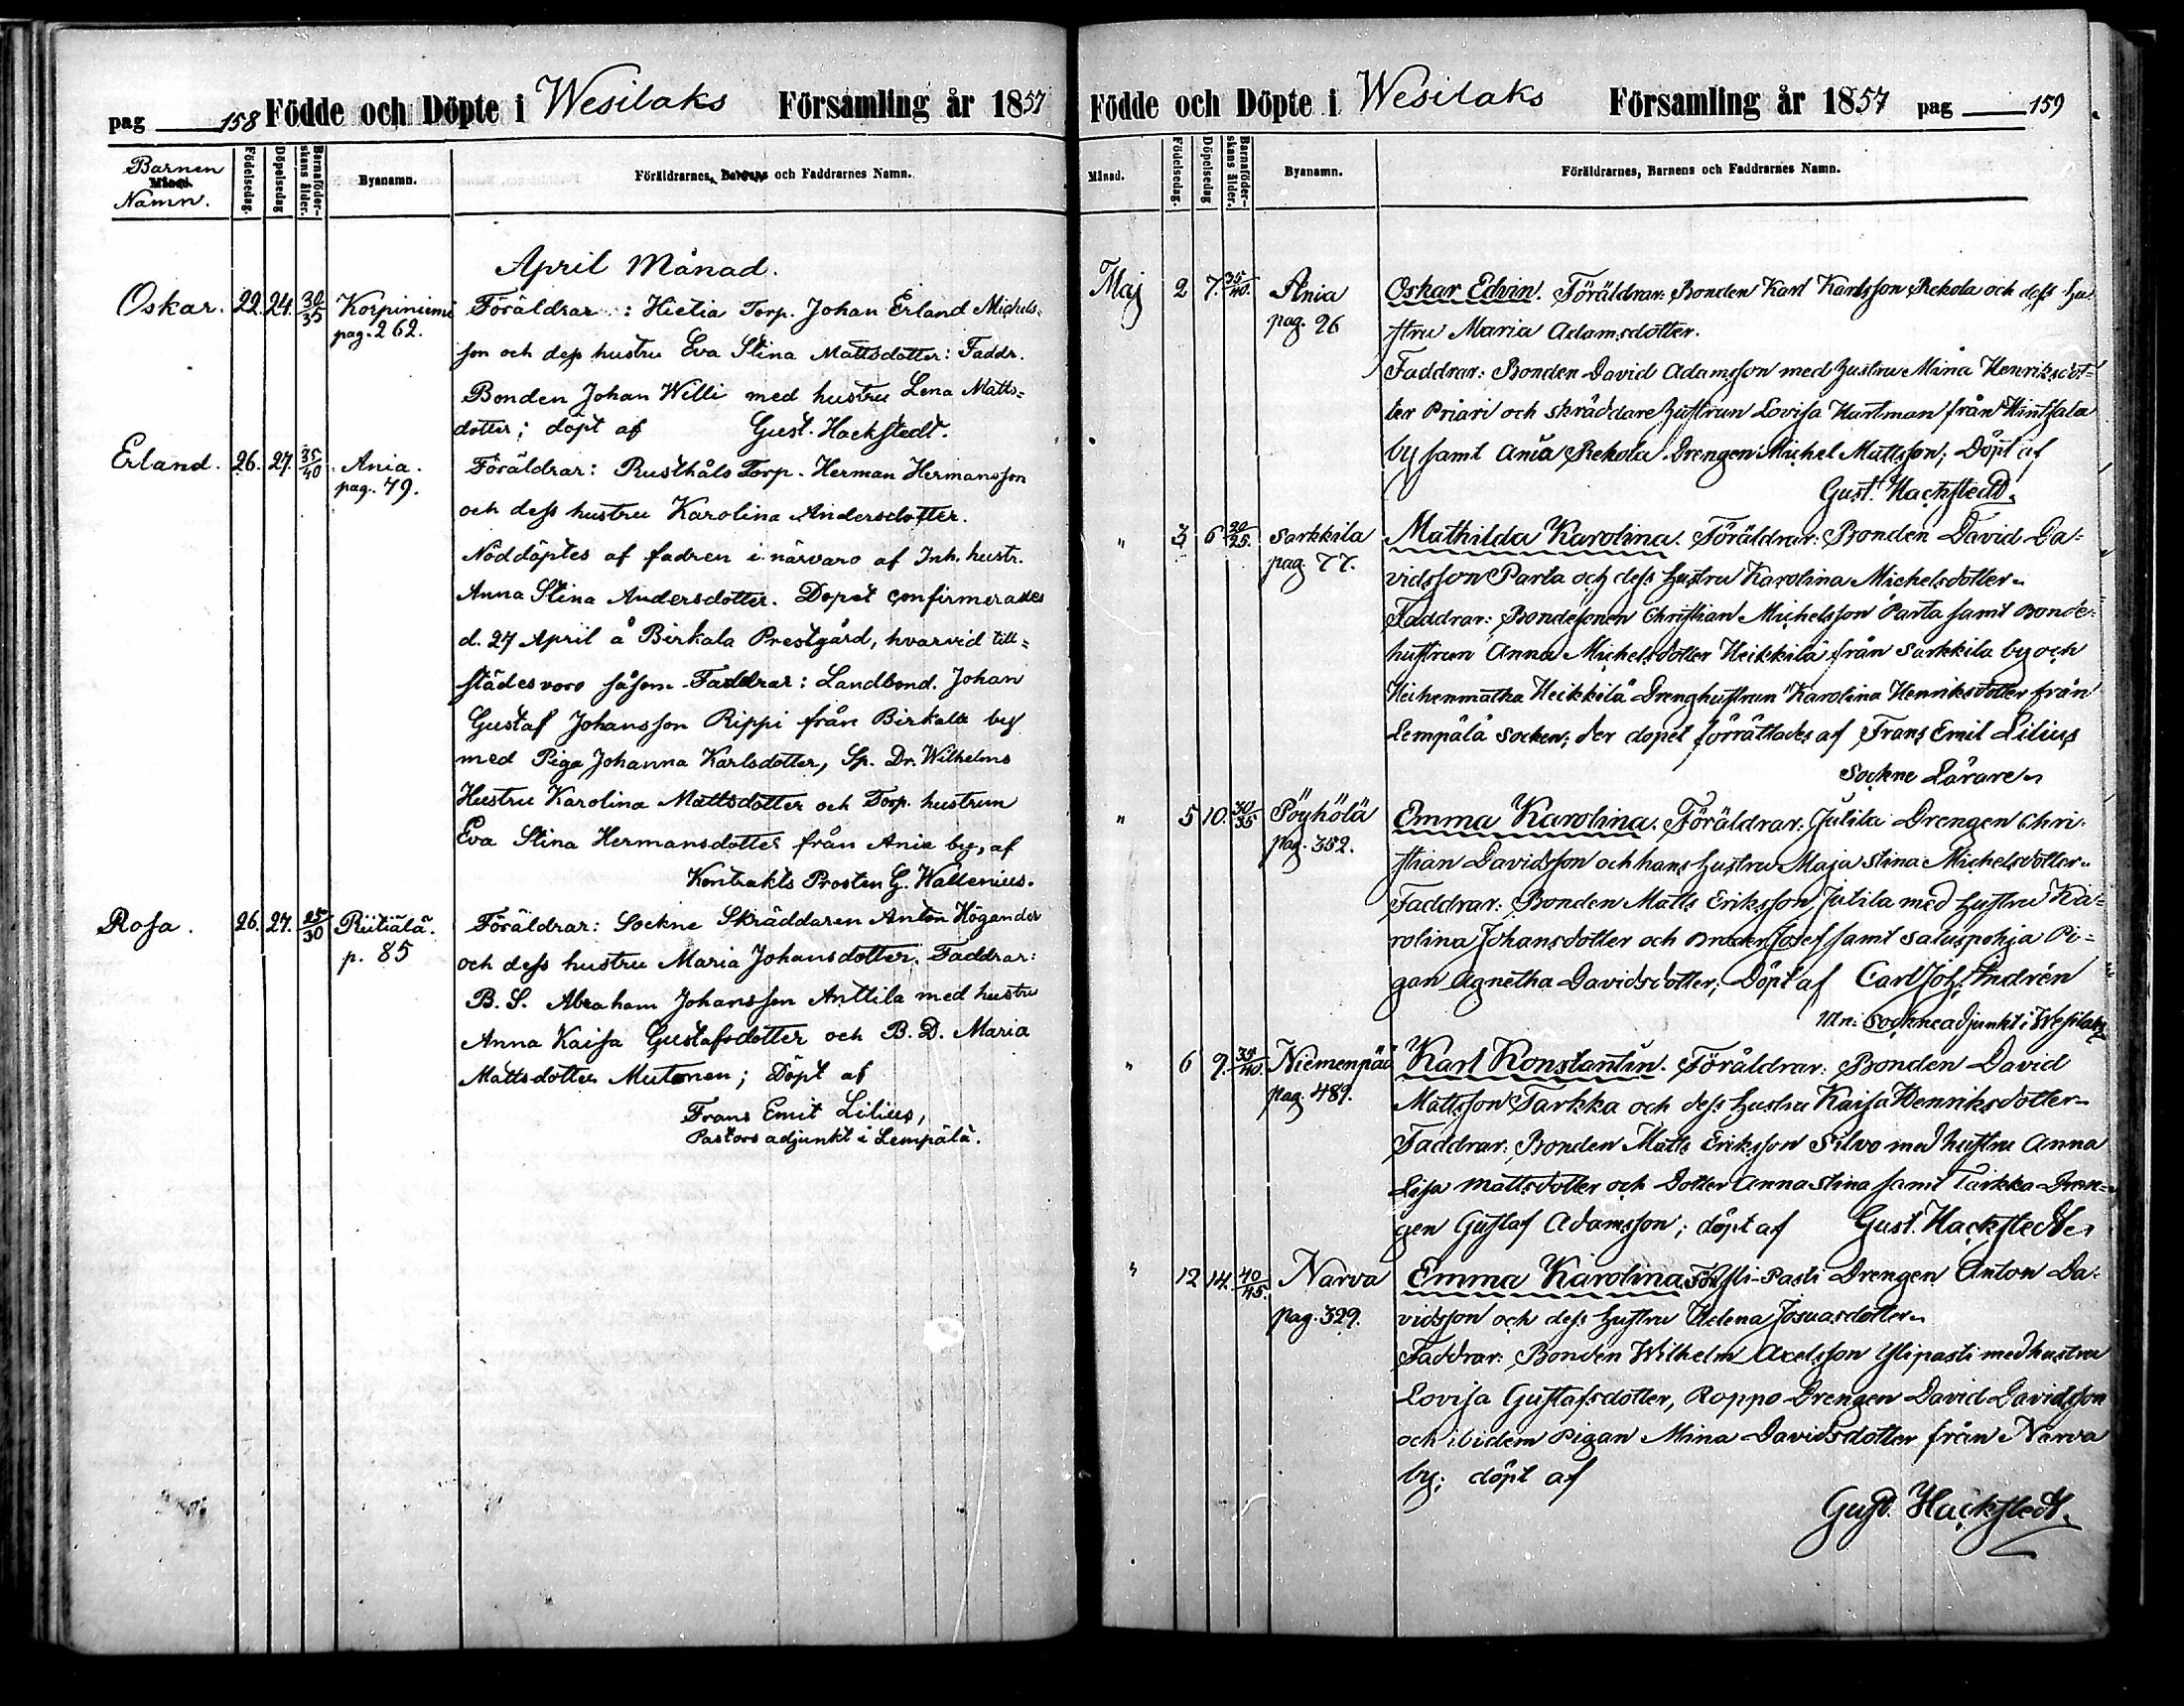 pag 158 Födde och Döpte i Wesilaks Församling år 1857
Barnen
Månad.
Namn.
Födelsedag.
Döpelsedag
Barnaföderskans ålder.
Byanamn.
Föräldrarnes, Barnens och Faddrarnes Namn.
April Månad.
Oskar. 22. 24. 30/35 Korpiniemi Föräldrar: Hietia Torp. Johan Erland Michels-
pag. 262.
son och dess hustru Eva Stina Mattsdotter: Faddr.
Bonden Johan Willi med hustru Lena Matts-
dotter; döpt af Gust. Hackstedt.
Erland. 26. 27. 35/40 Ania. Föräldrar: Rusthåls Torp. Herman Hermansson
pag. 79.
och dess hustru Karolina Andersdotter.
Nöddöptes af fadren i närvaro af Inh. hustr.
Anna Stina Andersdotter. Dopet confirmerades
d. 27 April å Birkala Prestgård, hvarvid till-
städes voro såsom Faddrar: Landbond. Johan
Gustaf Johansson Rippi från Birkala by
med Piga Johanna Karlsdotter, Sp. Dr. Wilhelms
Hustru Karolina Mattsdotter och Torp. hustrun
Eva Stina Hermansdotter från Ania by, af
Kontrakts Prosten G. Wallenius.
Rosa. 26. 27. 25/30 Riitiälä. Föräldrar: Sockne Skräddaren Anton Högander
p. 85
och dess hustru Maria Johansdotter. Faddrar:
B. S. Abraham Johansson Anttila med hustru
Anna Kaisa Gustafsdotter och B. D. Maria
Mattsdotter Mutanen; Döpt af
Frans Emil Lilius,
Pastors adjunkt i Lempälä.
Födde och Döpte i Wesilaks Församling år 1857 pag 159
Månad.
Födelsedag.
Döpelsedag
Barnaföderskans ålder.
Byanamn.
Föräldrarnes, Barnens och Faddrarnes Namn.
Maj 2 7. 35/40. Ania Oskar Edvin. Föräldrar: Bonden Karl Karlsson Rekola och dess hu-
pag. 96
stru Maria Adamsdotter.
Faddrar: Bonden David Adamsson med hustru Mina Henriksdot-
ter Priari och skräddare hustrun Lovisa Hartman från Hintsala
by samt Ania Rekola Drengen Michel Mattsson; Döpt af
Gust. Hackstedt.
" 3 6 20/25. Sarkkila Mathilda Karolina. Föräldrar: Bonden David Da-
pag. 77.
vidsson Parta och dess hustru Karolina Michelsdotter.
Faddrar: Bondesonen Christian Michelsson Parta samt Bonde-
hustrun Anna Michelsdotter Heikkilä från Sarkkila by och
Heikkilä Drenghustrun Karolina Henriksdotter från
Lempälä socken; der dopet förrättades af Frans Emil Lilius
Sockne Lärare.
" 5 10. 30/35 Pöyhölä Emma Karolina. Föräldrar: Jutila Drengen Chri-
pag. 352.
stian Davidsson och hans hustru Maja Stina Michelsdotter.
Faddrar: Bonden Matts Eriksson Jutila med hustru Ka-
rolina Johansdotter och Broder Josef samt Saluspohja Pi-
gan Agnetha Davidsdotter; Döpt af Carl Joh. Lindrén
vn: Sockneadjunkt i Wesilaks
" 6 9. 35/40. Niemenpää Karl Konstantin. Föräldrar: Bonden David
pag. 489.
Mattsson Tarkka och dess hustru Kaisa Henriksdotter.
Faddrar: Bonden Matts Eriksson Silvo med hustru Anna
Lisa Mattsdotter och Dotter Anna Stina samt Tarkka Dren-
gen Gustaf Adamsson; döpt af Gust. Hackstedt.
" 12 14. 40/45. Narva Emma Karolina. Yli-Pasti Drengen Anton Da-
pag. 329.
vidsson och dess hustru Helena Josuasdotter.
Faddrar: Bonden Wilhelm Axelsson Ylipasti med hustru
Lovisa Gustafsdotter, Roppo Drengen David Davidsson
och ibidem Pigan Mina Davidsdotter från Narva
by; döpt af
Gust. Hackstedt.